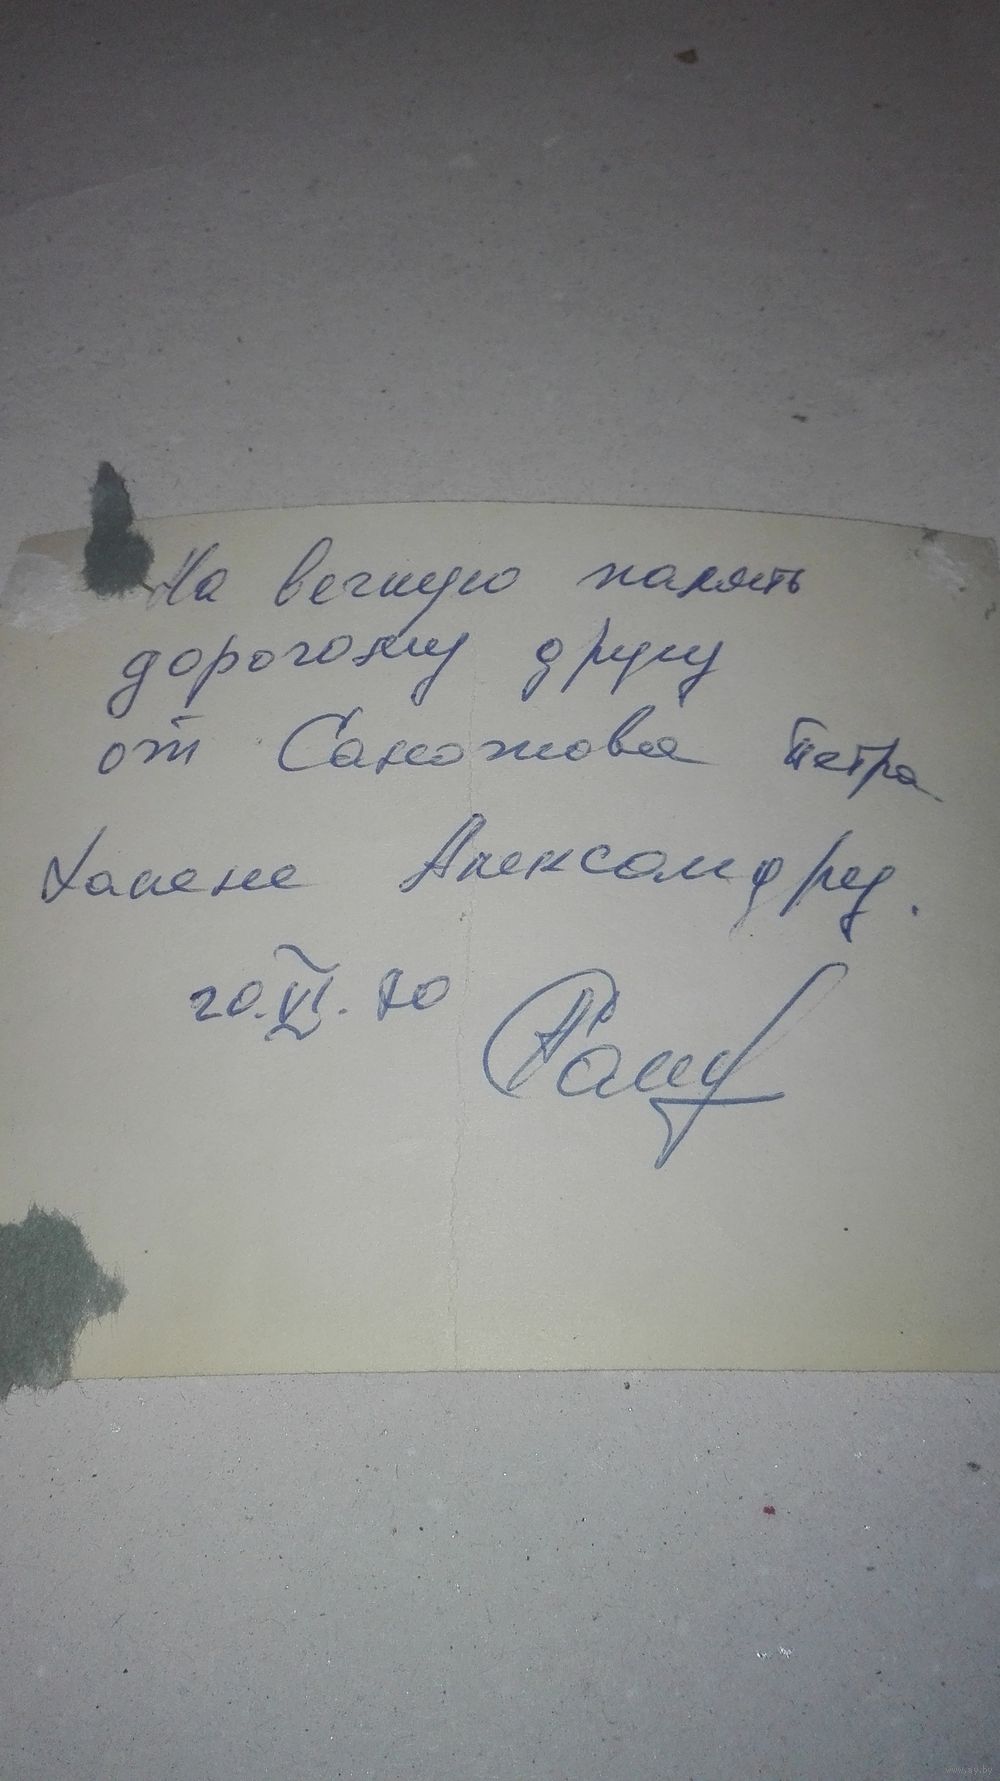 На вечную память
дорогому другу
от Сапожкова Петра
Александру.
20.VI.70
www.ay.by